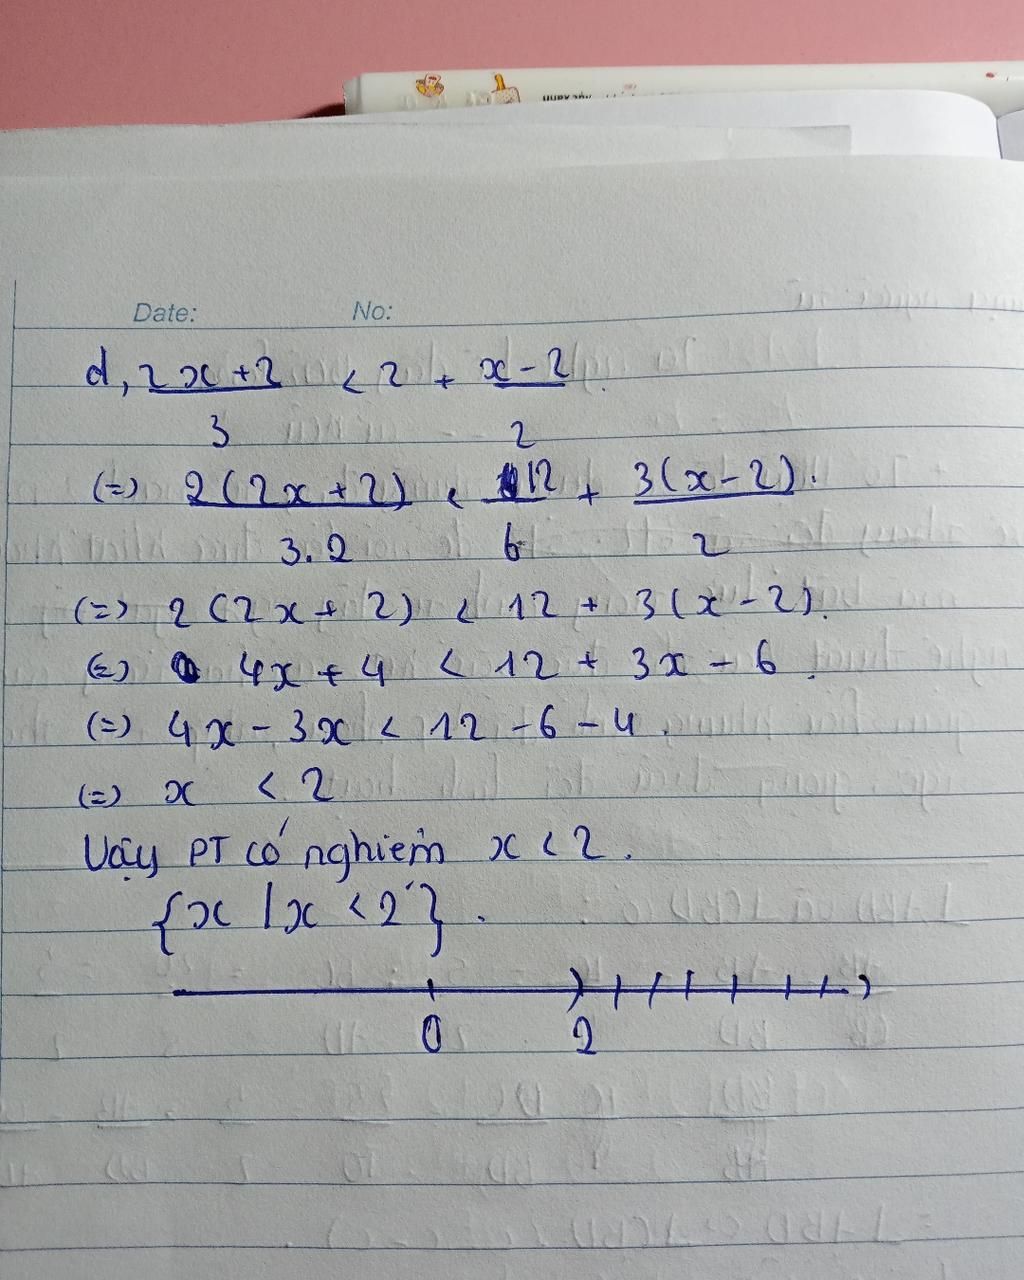 Date: No:
d, 2x + 2 < 2 + x - 2
3 2
(=) 2(2x + 2) < 12 + 3(x - 2).
3.2 6 2
(=) 2(2x + 2) < 12 + 3(x - 2).
(=) 4x + 4 < 12 + 3x - 6.
(=) 4x - 3x < 12 - 6 - 4.
(=) x < 2
Vậy PT có nghiệm x < 2.
{x | x < 2}.
0 2